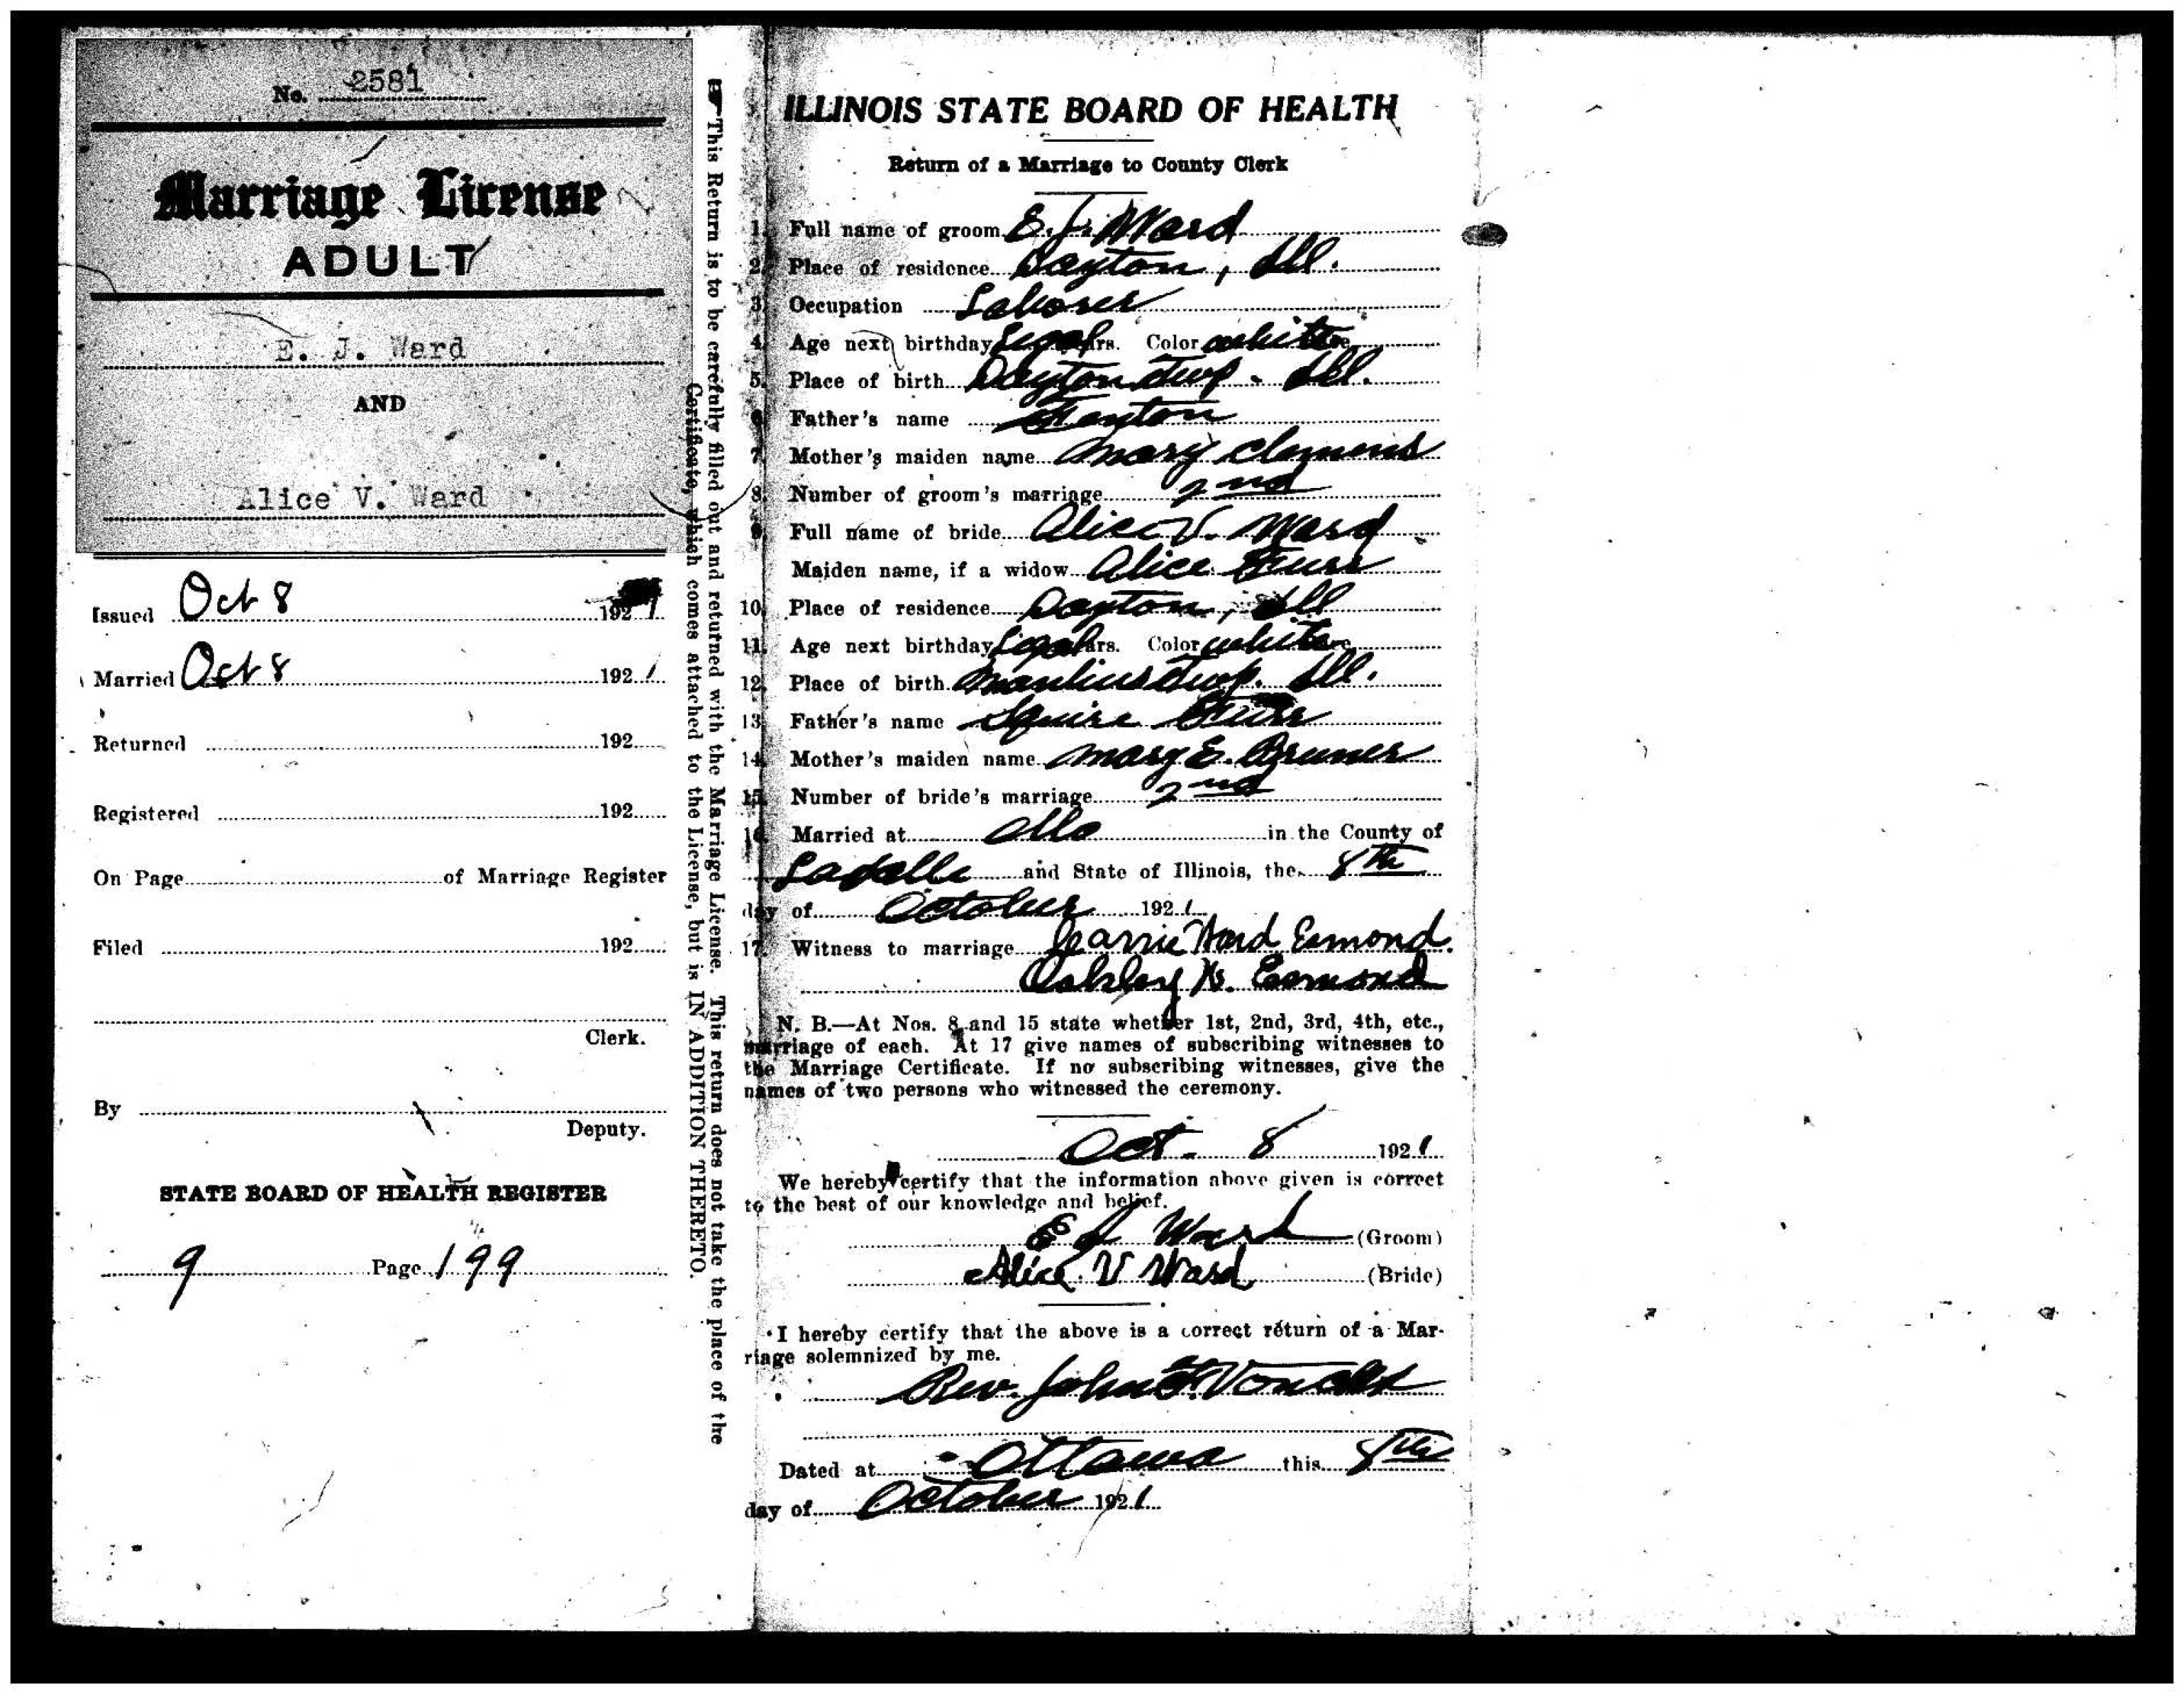 No. 2581
Marriage License
ADULT
E. J. Ward
AND
Alice V. Ward
Issued Oct 8 1921
Married Oct 8 1921
Returned 192
Registered 192
On Page of Marriage Register
Filed 192
Clerk.
By
Deputy.
STATE BOARD OF HEALTH REGISTER
9 Page 199
This Return is to be carefully filled out and returned with the Marriage License. This return does not take the place of the
Certificate, which comes attached to the License, but is IN ADDITION THERETO.
ILLINOIS STATE BOARD OF HEALTH
Return of a Marriage to County Clerk
1. Full name of groom E. J. Ward
2. Place of residence Dayton, Ill.
3. Occupation Laborer
4. Age next birthday Legal yrs. Color white
5. Place of birth Dayton Twp - Ill.
6. Father's name
7. Mother's maiden name Mary Clemens
8. Number of groom's marriage 2nd
9. Full name of bride Alice V. Ward
Maiden name, if a widow Alice Furr
10. Place of residence Dayton, Ill
11. Age next birthday Legal yrs. Color white
12. Place of birth Manlius Twp. Ill.
13. Father's name Squire Furr
14. Mother's maiden name Mary E. Bruner
15. Number of bride's marriage 2nd
16. Married at in the County of
LaSalle and State of Illinois, the 8th
day of October 1921
17. Witness to marriage Ward Esmond.
Esmond
N. B.—At Nos. 8 and 15 state whether 1st, 2nd, 3rd, 4th, etc.,
marriage of each. At 17 give names of subscribing witnesses to
the Marriage Certificate. If no subscribing witnesses, give the
names of two persons who witnessed the ceremony.
Oct. 8 1921
We hereby certify that the information above given is correct
to the best of our knowledge and belief.
E J Ward (Groom)
Alice V Ward (Bride)
I hereby certify that the above is a correct return of a Mar-
riage solemnized by me.
Rev. John
Dated at Ottawa this 8th
day of October 1921